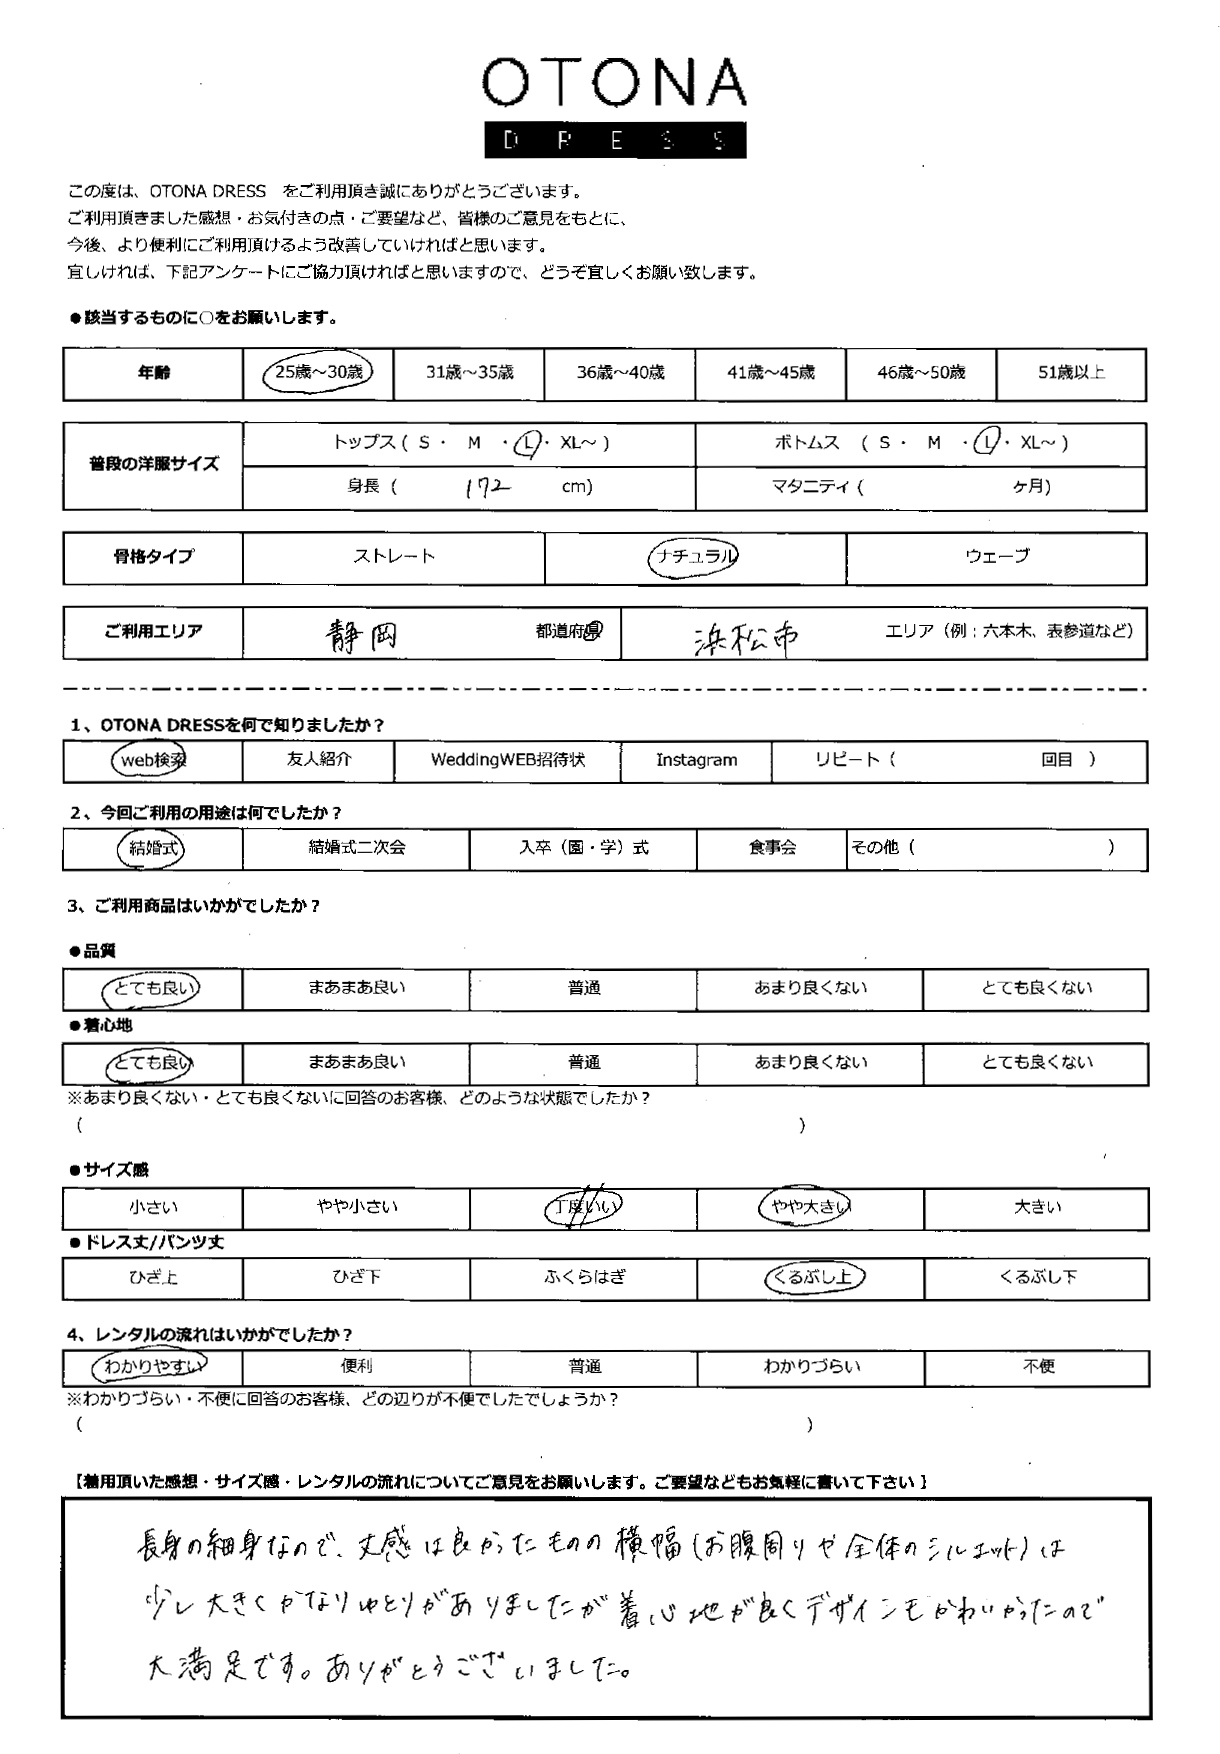 OTONA
DRESS
この度は、OTONA DRESS をご利用頂き誠にありがとうございます。
ご利用頂きました感想・お気付きの点・ご要望など、皆様のご意見をもとに、
今後、より便利にご利用頂けるよう改善していければと思います。
宜しければ、下記アンケートにご協力頂ければと思いますので、どうぞ宜しくお願い致します。
●該当するものに○をお願いします。
年齢 25歳～30歳 31歳～35歳 36歳～40歳 41歳～45歳 46歳～50歳 51歳以上
普段の洋服サイズ トップス ( S ・ M ・ L ・ XL～ ) ボトムス ( S ・ M ・ L ・ XL～ )
身長 ( 172 cm) マタニティ ( ヶ月)
骨格タイプ ストレート ナチュラル ウェーブ
ご利用エリア 静岡 都道府県 浜松市 エリア（例：六本木、表参道など）
1、OTONA DRESSを何で知りましたか？
web検索 友人紹介 WeddingWEB招待状 Instagram リピート（ 回目 ）
2、今回ご利用の用途は何でしたか？
結婚式 結婚式二次会 入卒（園・学）式 食事会 その他（ ）
3、ご利用商品はいかがでしたか？
●品質
とても良い まあまあ良い 普通 あまり良くない とても良くない
●着心地
とても良い まあまあ良い 普通 あまり良くない とても良くない
※あまり良くない・とても良くないに回答のお客様、どのような状態でしたか？
( )
●サイズ感
小さい やや小さい 丁度いい やや大きい 大きい
●ドレス丈/パンツ丈
ひざ上 ひざ下 ふくらはぎ くるぶし上 くるぶし下
4、レンタルの流れはいかがでしたか？
わかりやすい 便利 普通 わかりづらい 不便
※わかりづらい・不便に回答のお客様、どの辺りが不便でしたでしょうか？
( )
【着用頂いた感想・サイズ感・レンタルの流れについてご意見をお願いします。ご要望などもお気軽に書いて下さい】
長身の細身なので、丈感は良かったものの横幅(お腹周りや全体のシルエット)は
少し大きくかなりゆとりがありましたが着心地が良くデザインもかわいかったので
大満足です。ありがとうございました。